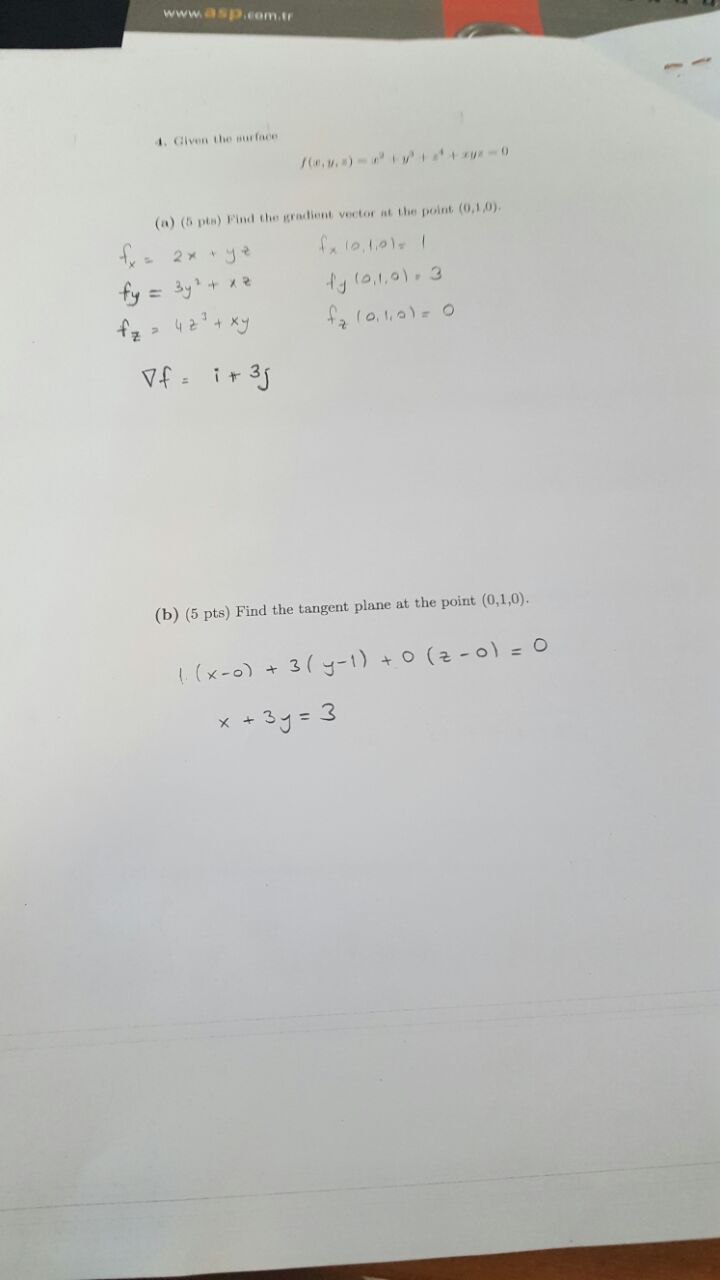 www.asp.com.tr
4. Given the surface
f(x, y, z) = x² + y³ + z⁴ + xyz = 0
(a) (5 pts) Find the gradient vector at the point (0,1,0).
fₓ = 2x + yz    fₓ (0,1,0) = 1
fy = 3y² + xz    fy (0,1,0) = 3
f_z = 4z³ + xy    f_z (0,1,0) = 0
∇f = i + 3j
(b) (5 pts) Find the tangent plane at the point (0,1,0).
1.(x-0) + 3(y-1) + 0 (z-0) = 0
x + 3y = 3